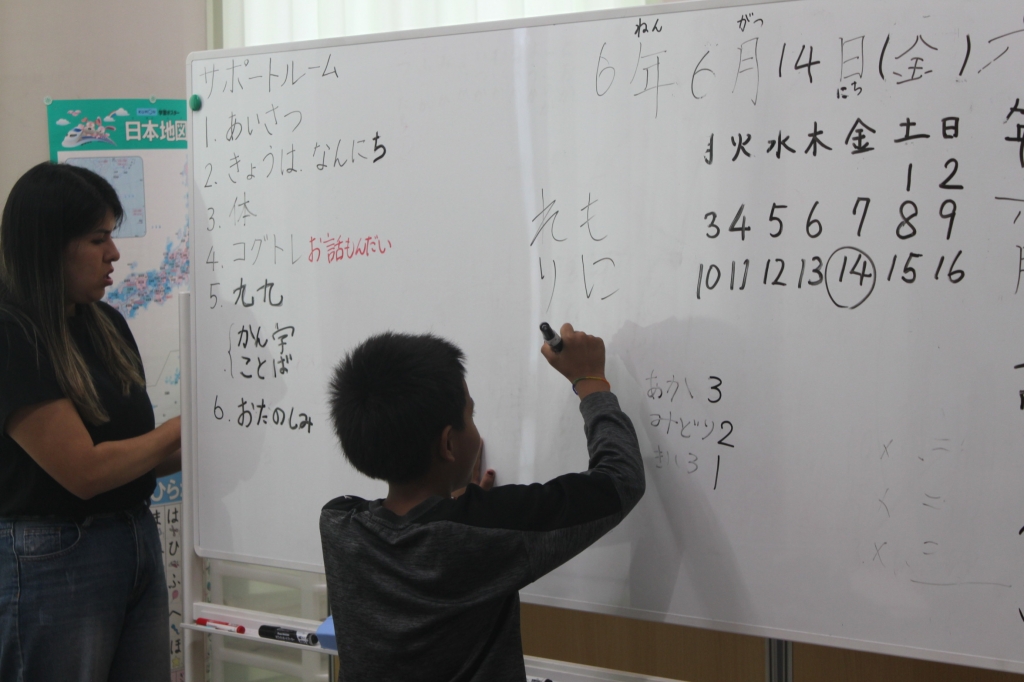 サポートルーム
1. あいさつ
2. きょうは、なんにち
3. 体
4. コグトレ お話もんだい
5. 九九
かん字
ことば
6. おたのしみ
ねん がつ
6年6月14日(金)
にち
月火水木金土日
1 2
3 4 5 6 7 8 9
10 11 12 13 14 15 16
れも
りに
あかい 3
みどり 2
きいろ 1
日本地図
ひら
はひふへほ